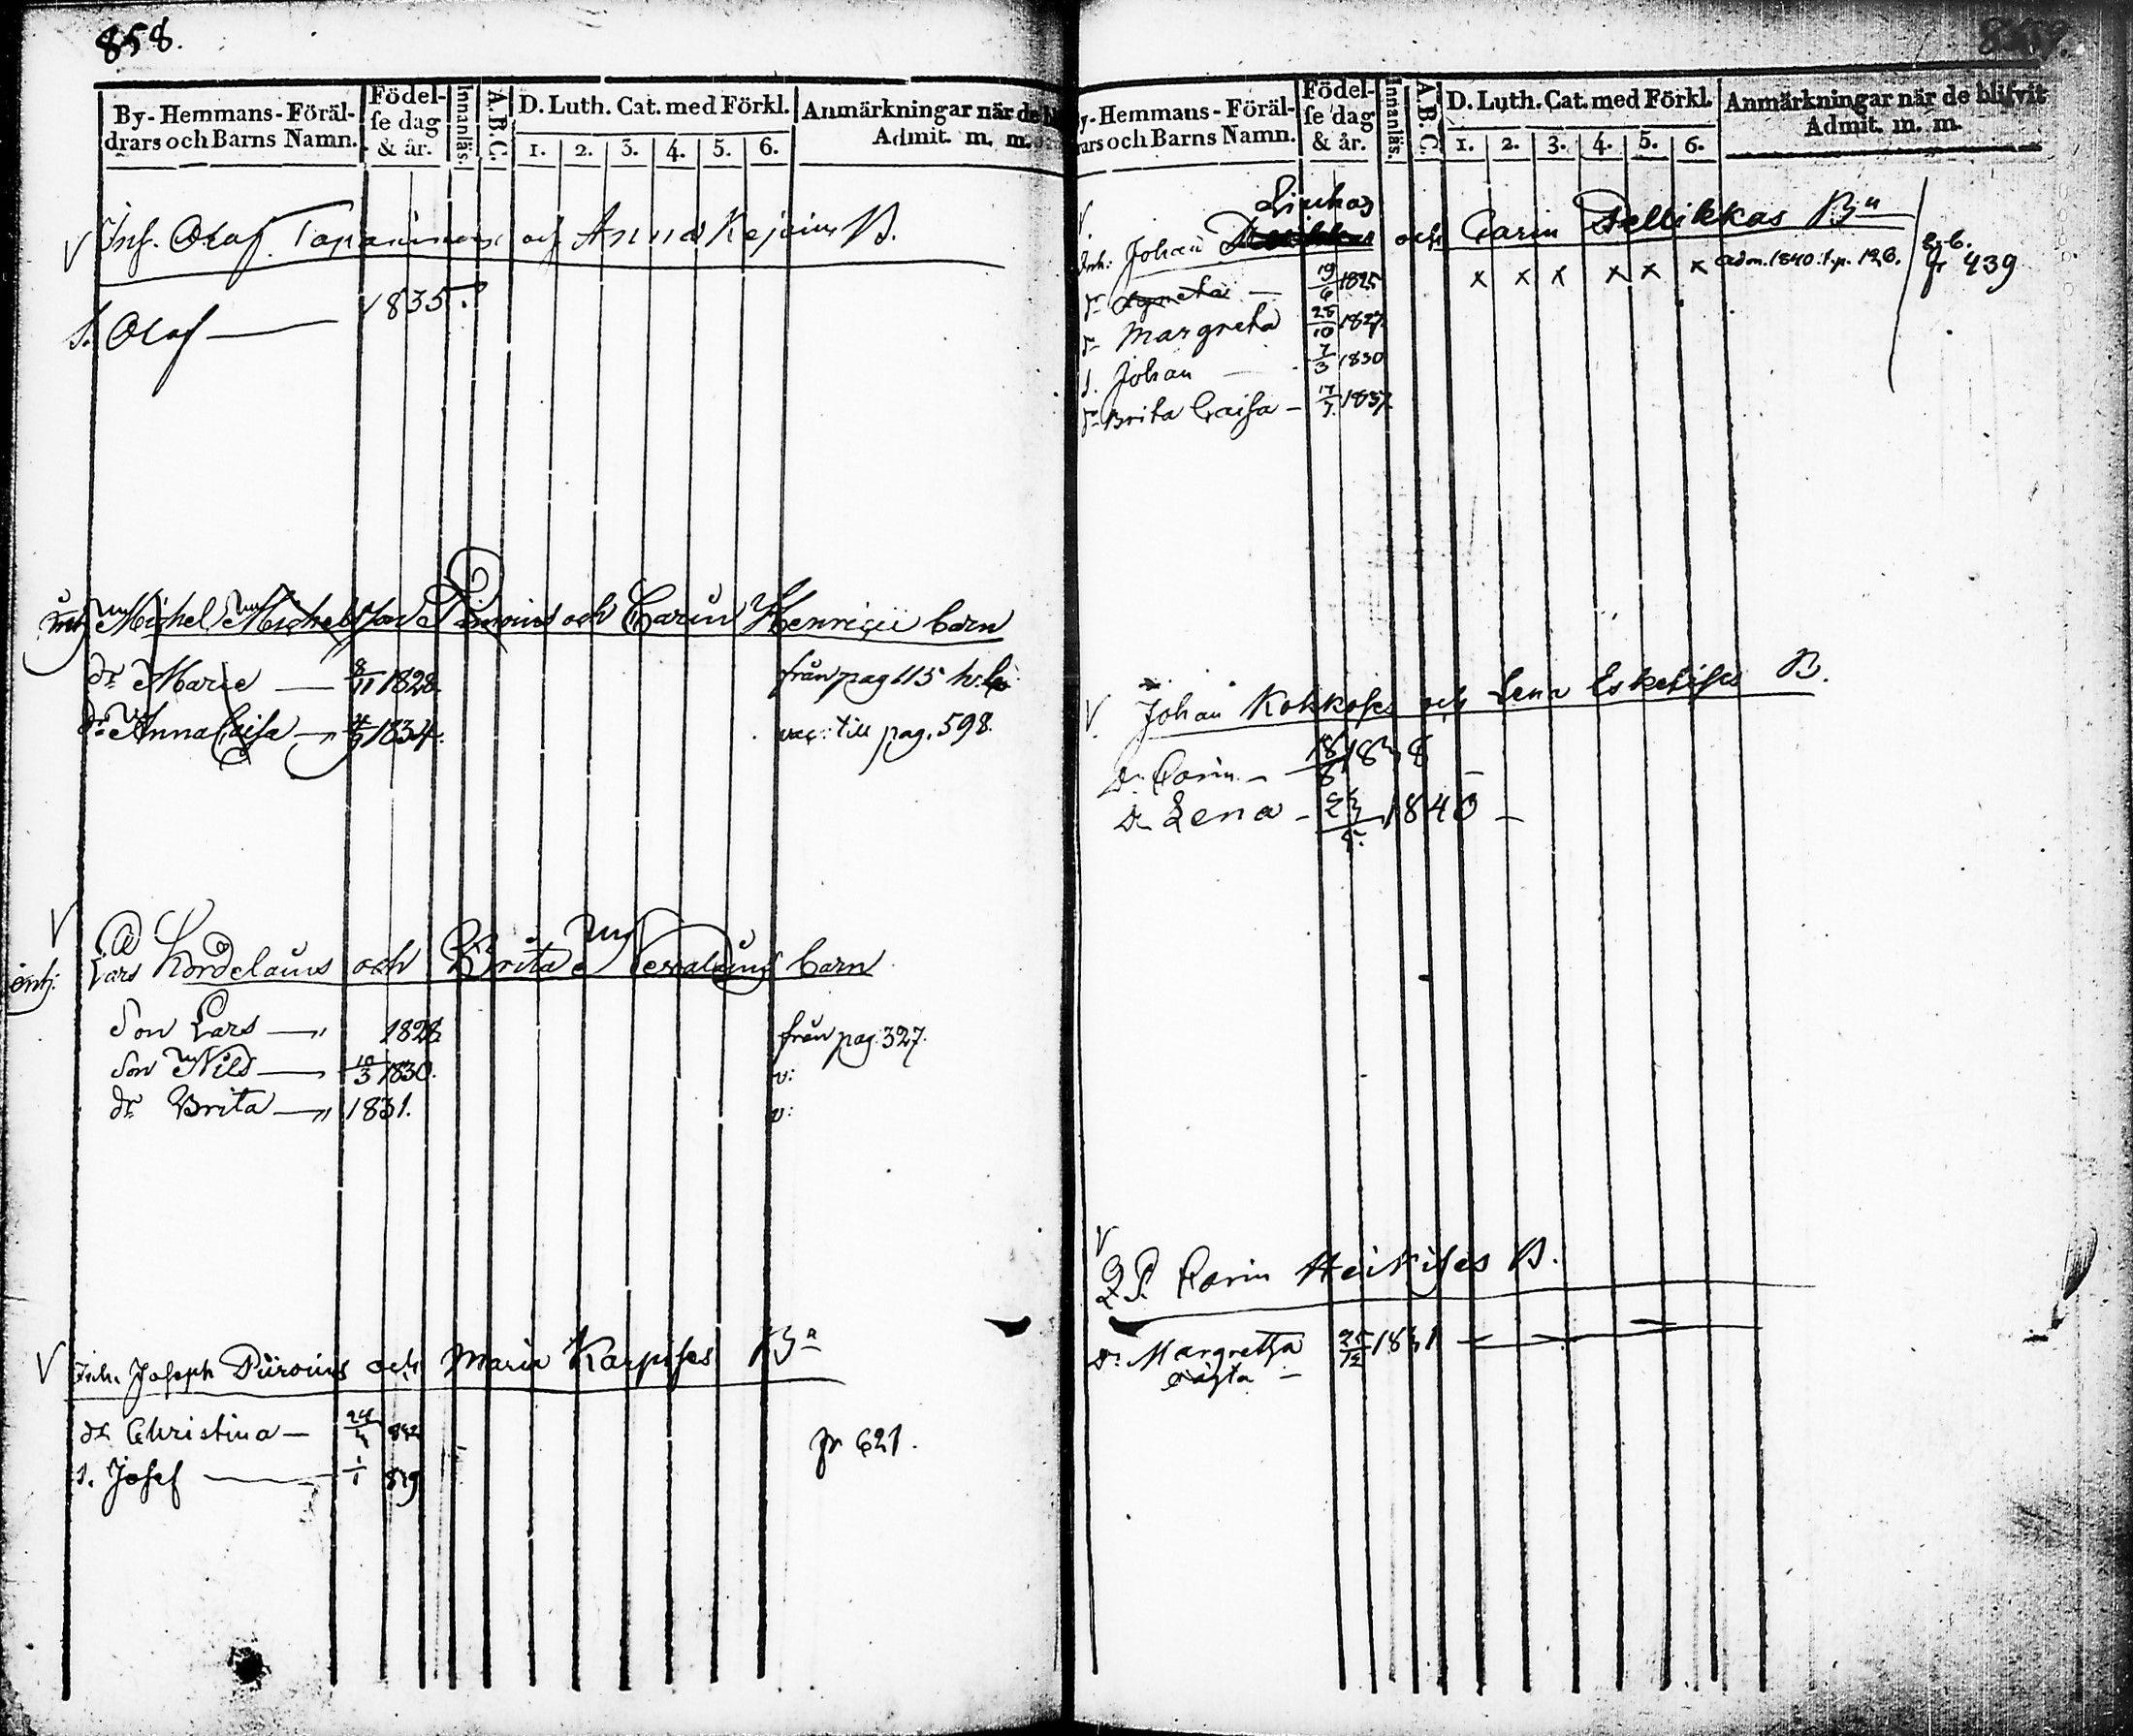 858.
By-Hemmans-Föräl-
drars och Barns Namn.
Födel-
se dag
& år.
Innanläs.
A.B.C.
D. Luth. Cat. med Förkl.
1. 2. 3. 4. 5. 6.
Anmärkningar när de
Admit. m. m.
V Inh. Olof Tapanainen och Anna Kejoins B.
S. Olof — 1835
inh Michel Michelsson och Carin Henricii barn
dr Marie — 8/11 1828. från pag 115
dr Anna Caisa — 4/9 1834. till pag. 598.
V
inh: Lars Kordelains och Brita barn
Son Lars — 1828 från pag. 327.
Son Nils — 10/3 1830. v:
dr Brita — 1831. v:
V Inh. Joseph Piiroins och Maria Karpises Bn
dr Christina — 24/
s. Josef — 1/1 839
fr 621.
859.
y-Hemmans-Föräl-
rars och Barns Namn.
Födel-
se dag
& år.
Innanläs.
A.B.C.
D. Luth. Cat. med Förkl.
1. 2. 3. 4. 5. 6.
Anmärkningar när de blifvit
Admit. m. m.
V
Inh: Johan och Carin Pellikkas Bn
dr Agneta — 19/6 1825 x x x x x x adm. 1840. p. 126. fr 439
dr Margreta 25/10 1827.
s. Johan — 7/3 1830
dr Brita Caisa — 17/7 1837.
V. Johan Kokkoses och Lena Eskelises B.
Dr Carin — 18/8 1838 —
Dr Lena — 23/5. 1840 —
V
Carin Heikises B.
Dr Margretha 25/12 1831
oägta —